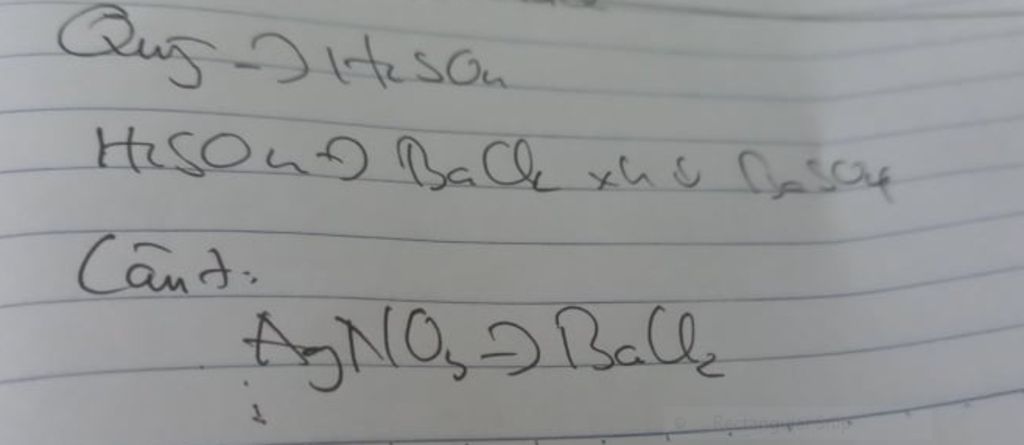 Quỳ → H2SO4
H2SO4 → BaCl2 xh ↓ BaSO4
AgNO3 → BaCl2